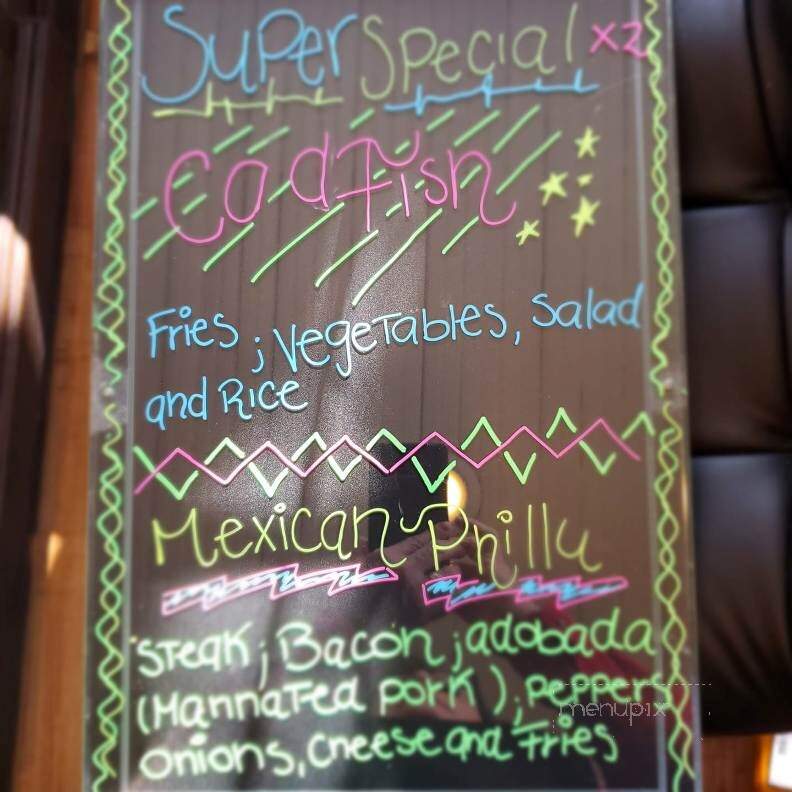 Super Special x2
Codfish
Fries ; Vegetables, salad
and Rice
Mexican Philly
Steak ; Bacon ; adobada
(Mannated pork ) ; Peppers
onions, cheese and Fries
menupix